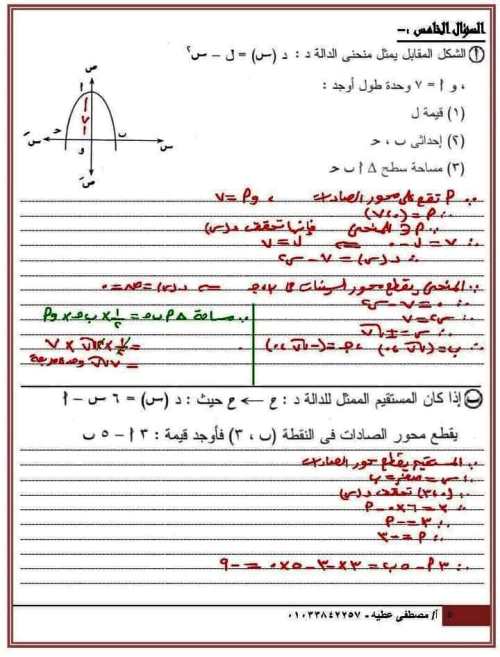 السؤال الخامس :-
أ الشكل المقابل يمثل منحنى الدالة د : د (س) = ل – س٢
، و أ = ٧ وحدة طول أوجد :
(١) قيمة ل
(٢) إحداثى ب ، حـ
(٣) مساحة سطح Δ أ ب حـ
ص
أ
٧
حـ
ب
سَ
و
س
صَ
∵ P تقع على محور الصادات ، وP = ٧
∴ P = (٠،٧)
∵ P ∈ المنحنى فإنها تحقق د(س)
∴ ٧ = ل - ٠ ⇐ ل = ٧
∴ د(س) = ٧ - س٢
∵ المنحنى يقطع محور السينات فى ب، حـ ⇐ د(س) = ص = ٠
∴ ٠ = ٧ - س٢
∴ س٢ = ٧
∴ س = ±√٧
∴ ب = (√٧، ٠) ، حـ = (-√٧، ٠)
∵ مساحة Δ P ب حـ = ١/٢ × ب حـ × وP
= ١/٢ × ٢√٧ × ٧
= ٧√٧ وحدة مربعة
ب إذا كان المستقيم الممثل للدالة د : ح ← ح حيث : د (س) = ٦ س – أ
يقطع محور الصادات فى النقطة (ب ، ٣) فأوجد قيمة : ٣ أ – ٥ ب
∵ المستقيم يقطع محور الصادات
∴ س = صفر = ب
∴ (٠،٣) تحقق د(س)
∴ ٣ = ٦×٠ - P
∴ ٣ = -P
∴ P = -٣
∴ ٣P - ٥ب = ٣×-٣ - ٥×٠ = -٩
أ/ مصطفى عطيه - ٠١٠٣٣٨٤٢٢٥٧